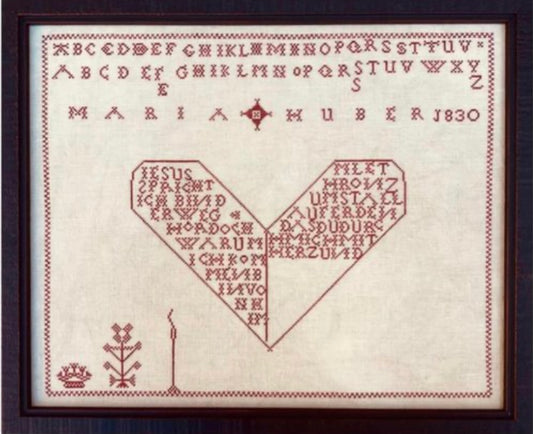 ABCCDDEF GHIKLMMNNOPQRSSTTUV
ABCDEF GHIKLMNOPQRSTUVWXYZ
E S
MARIA HUBER 1830
JESUS
SPRICHT
ICH BIND
ERWEG
HORDOCH
WARUM
ICHKOM
MENB
INVO
NH
IM
MLET
HRONZ
UMSTALL
AUFERDEN
DASDUDURC
HMICHMIT
HERZUND